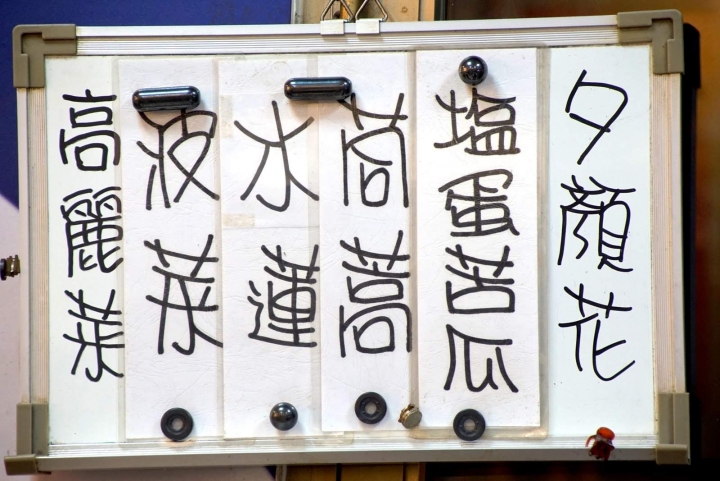 夕顏花
塩蛋苦瓜
茼蒿
水蓮
波菜
高麗菜